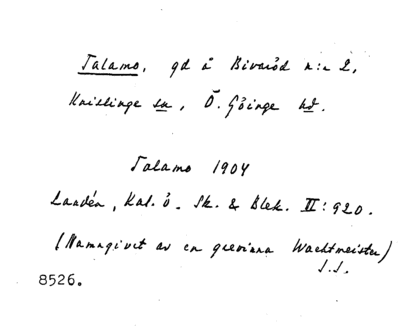 Talamo, gd å Bivaröd n:r 2,
Knislinge sn, Ö. Göinge hd.
Talamo 1904
Landén, Kal. ö. Sk. & Blek. II: 920.
(Namngivet av en grevinna Wachtmeister)
J.J.
8526.